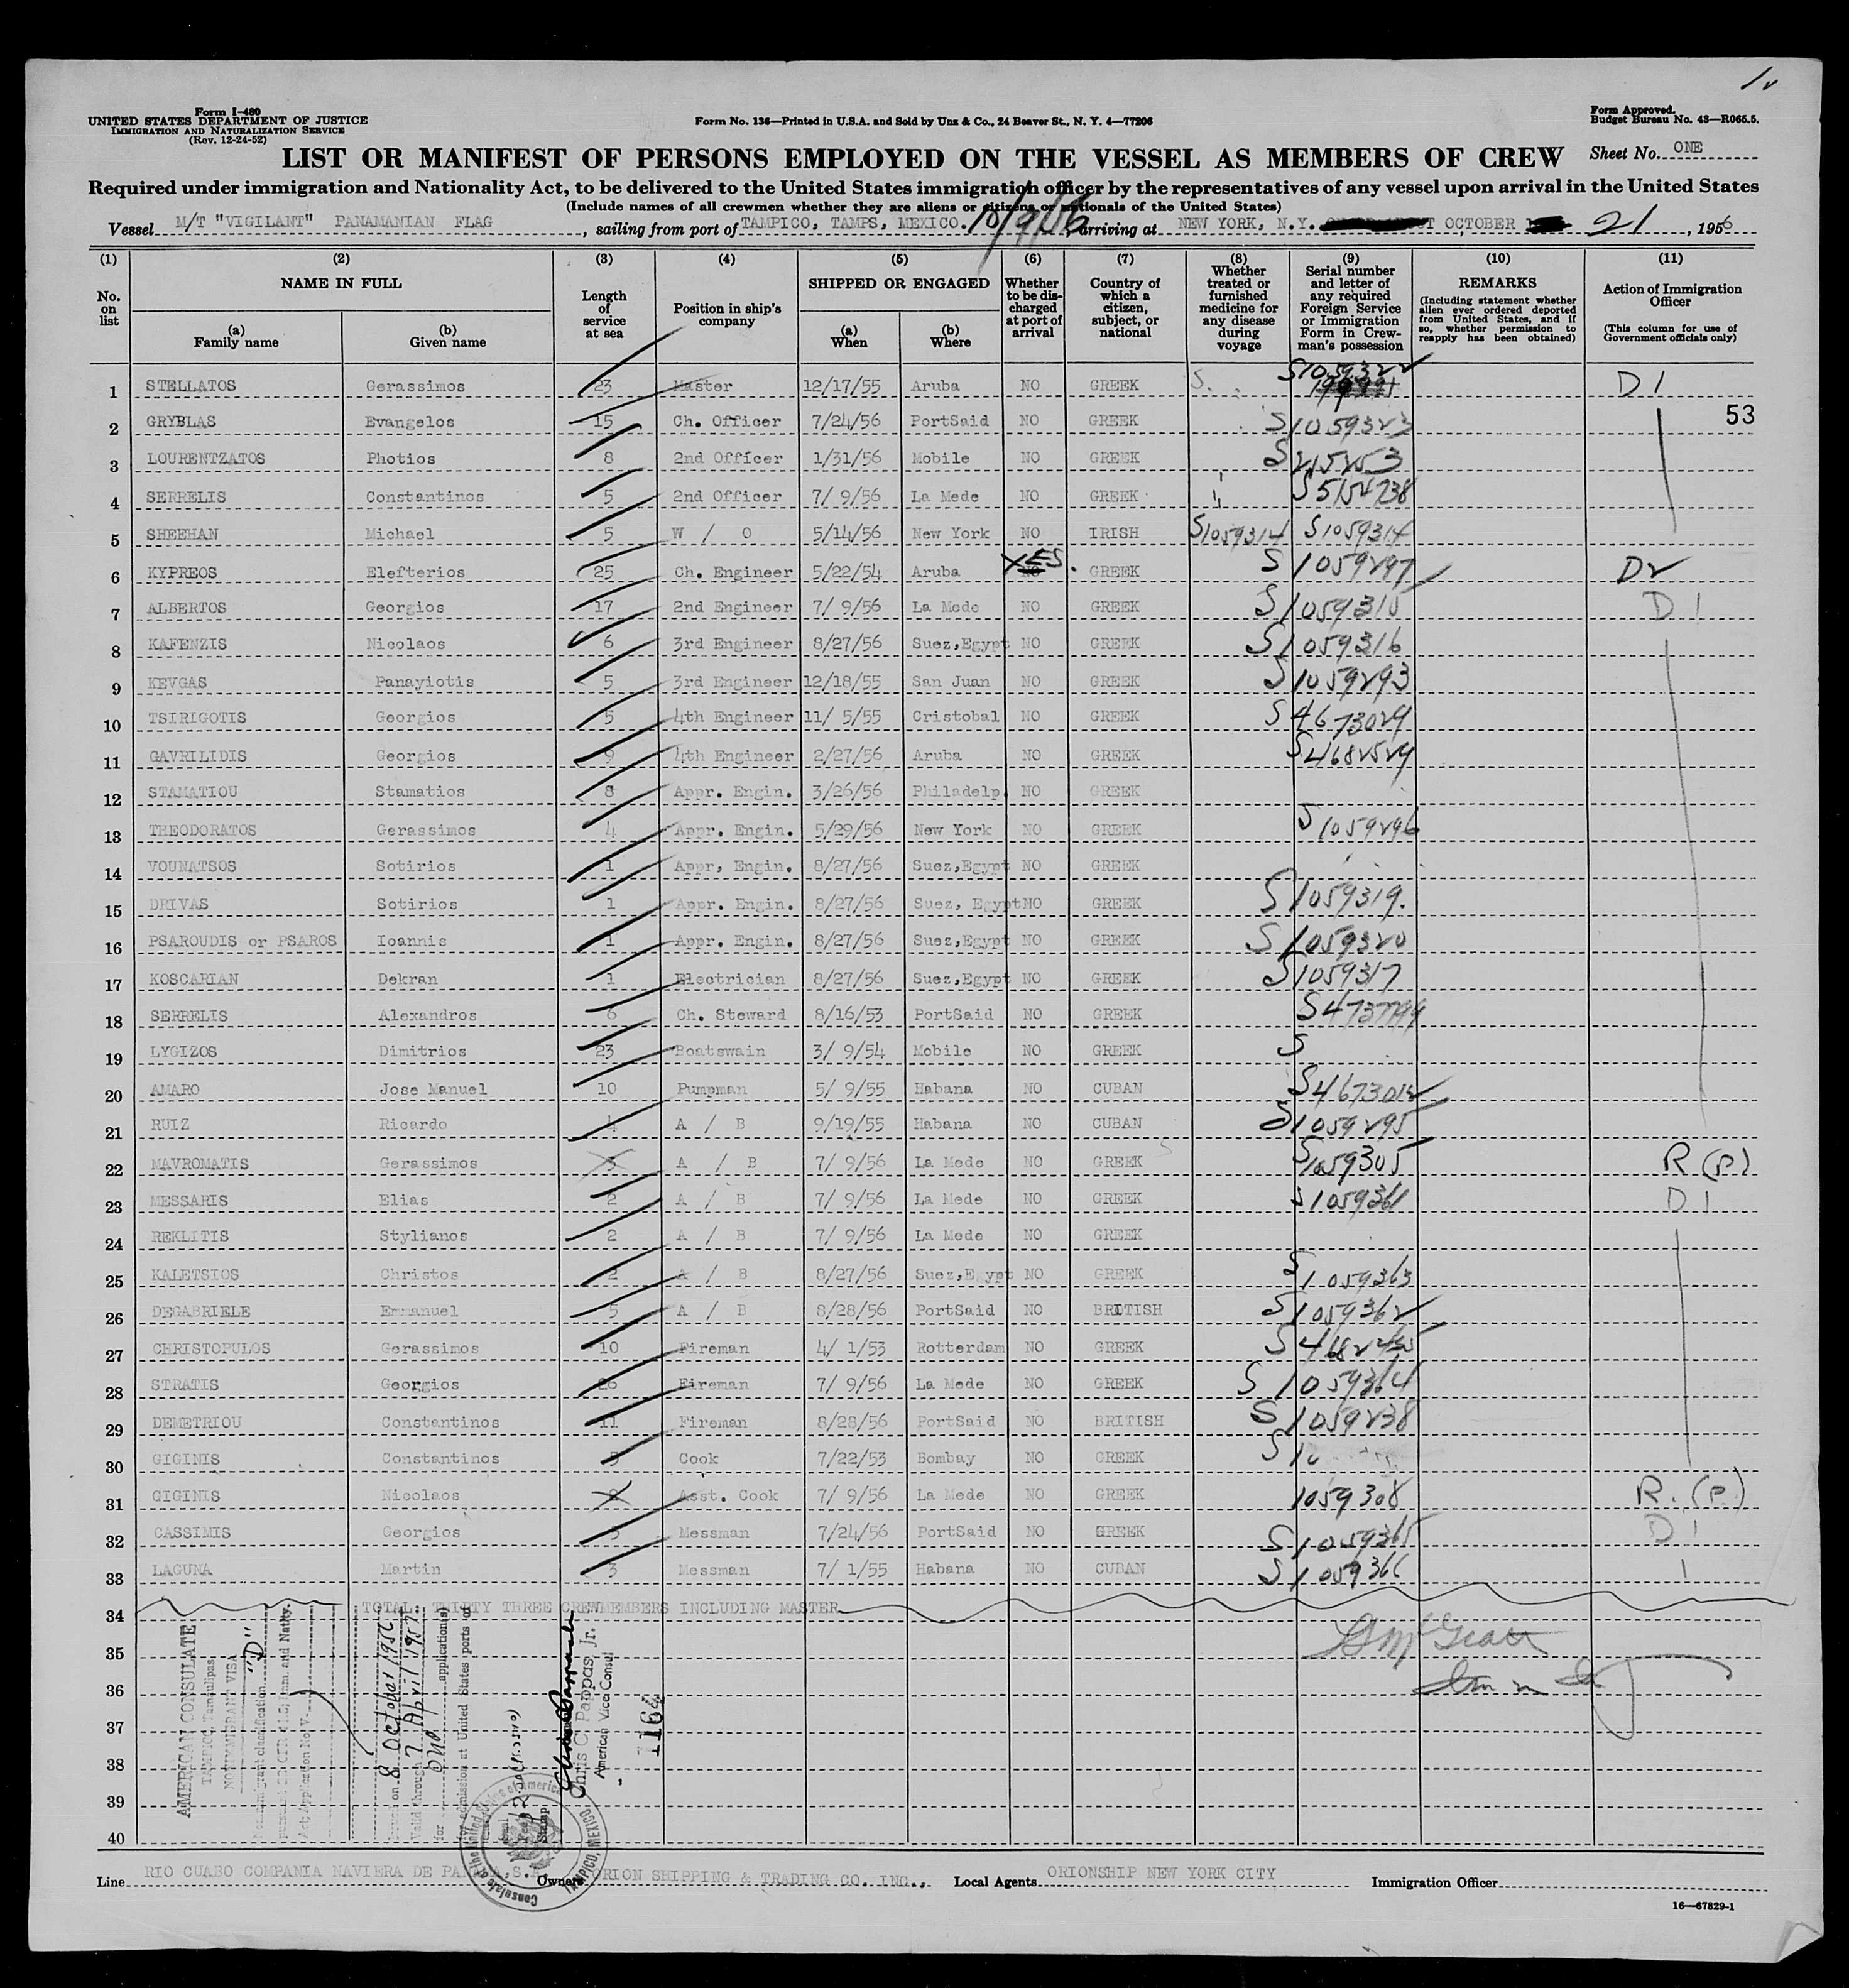 1
Form I-480
UNITED STATES DEPARTMENT OF JUSTICE
IMMIGRATION AND NATURALIZATION SERVICE
(Rev. 12-24-52)
Form No. 136—Printed in U.S.A. and Sold by Unz & Co., 24 Beaver St., N. Y. 4—77206
Form Approved.
Budget Bureau No. 43—R065.5.
LIST OR MANIFEST OF PERSONS EMPLOYED ON THE VESSEL AS MEMBERS OF CREW
Sheet No. ONE
Required under immigration and Nationality Act, to be delivered to the United States immigration officer by the representatives of any vessel upon arrival in the United States
(Include names of all crewmen whether they are aliens or citizens or nationals of the United States)
Vessel M/T "VIGILANT" PANAMANIAN FLAG, sailing from port of TAMPICO, TAMPS, MEXICO. 10/9/56, arriving at NEW YORK, N.Y. OCTOBER 21, 1956
(1) No. on list
(2) NAME IN FULL (a) Family name (b) Given name
(3) Length of service at sea
(4) Position in ship's company
(5) SHIPPED OR ENGAGED (a) When (b) Where
(6) Whether to be discharged at port of arrival
(7) Country of which a citizen, subject, or national
(8) Whether treated or furnished medicine for any disease during voyage
(9) Serial number and letter of any required Foreign Service or Immigration Form in Crewman's possession
(10) REMARKS (Including statement whether alien ever ordered deported from United States, and if so, whether permission to reapply has been obtained)
(11) Action of Immigration Officer (This column for use of Government officials only)
1 STELLATOS Gerassimos 23 Master 12/17/55 Aruba NO GREEK S1059322 D1
53
2 GRYBLAS Evangelos 15 Ch. Officer 7/24/56 PortSaid NO GREEK S1059323
3 LOURENTZATOS Photios 8 2nd Officer 1/31/56 Mobile NO GREEK S215253
4 SERRELIS Constantinos 5 2nd Officer 7/ 9/56 La Mede NO GREEK S5154738
5 SHEEHAN Michael 5 W / O 5/14/56 New York NO IRISH S1059314 S1059314
6 KYPREOS Elefterios 25 Ch. Engineer 5/22/54 Aruba YES. GREEK S1059297 D2
7 ALBERTOS Georgios 17 2nd Engineer 7/ 9/56 La Mede NO GREEK S1059315 D1
8 KAFENZIS Nicolaos 6 3rd Engineer 8/27/56 Suez,Egypt NO GREEK S1059316
9 KEVGAS Panayiotis 5 3rd Engineer 12/18/55 San Juan NO GREEK S1059293
10 TSIRIGOTIS Georgios 5 4th Engineer 11/ 5/55 Cristobal NO GREEK S4673029
11 GAVRILIDIS Georgios 9 4th Engineer 2/27/56 Aruba NO GREEK S4682529
12 STAMATIOU Stamatios 8 Appr. Engin. 3/26/56 Philadelp. NO GREEK
13 THEODORATOS Gerassimos 4 Appr. Engin. 5/29/56 New York NO GREEK S1059296
14 VOUNATSOS Sotirios 1 Appr, Engin. 8/27/56 Suez,Egypt NO GREEK
15 DRIVAS Sotirios 1 Appr. Engin. 8/27/56 Suez, Egypt NO GREEK S1059319.
16 PSAROUDIS or PSAROS Ioannis 1 Appr. Engin. 8/27/56 Suez,Egypt NO GREEK S1059320
17 KOSCARIAN Dekran 1 Electrician 8/27/56 Suez,Egypt NO GREEK S1059317
18 SERRELIS Alexandros 6 Ch. Steward 8/16/53 PortSaid NO GREEK
19 LYGIZOS Dimitrios 23 Boatswain 3/ 9/54 Mobile NO GREEK S
20 AMARO Jose Manuel 10 Pumpman 5/ 9/55 Habana NO CUBAN S4673012
21 RUIZ Ricardo 4 A / B 9/19/55 Habana NO CUBAN S1059295
22 MAVROMATIS Gerassimos A / B 7/ 9/56 La Mede NO GREEK S1059305 R (P)
23 MESSARIS Elias 2 A / B 7/ 9/56 La Mede NO GREEK S1059361 D1
24 REKLITIS Stylianos 2 A / B 7/ 9/56 La Mede NO GREEK
25 KALETSIOS Christos 2 A / B 8/27/56 Suez,Egypt NO GREEK S1059363
26 DEGABRIELE Emmanuel 5 A / B 8/28/56 PortSaid NO BRITISH S1059362
27 CHRISTOPULOS Gerassimos 10 Fireman 4/ 1/53 Rotterdam NO GREEK
28 STRATIS Georgios 26 Fireman 7/ 9/56 La Mede NO GREEK S1059364
29 DEMETRIOU Constantinos 11 Fireman 8/28/56 PortSaid NO BRITISH S1059238
30 GIGINIS Constantinos 5 Cook 7/22/53 Bombay NO GREEK S10
31 GIGINIS Nicolaos Asst. Cook 7/ 9/56 La Mede NO GREEK 1059308 R. (P.)
32 CASSIMIS Georgios 3 Messman 7/24/56 PortSaid NO GREEK S1059365 D1
33 LAGUNA Martin 3 Messman 7/ 1/55 Habana NO CUBAN S1059366
34 TOTAL: THIRTY THREE CREWMEMBERS INCLUDING MASTER
35
36
37
38
39
40
AMERICAN CONSULATE
TAMPICO, Tamaulipas,
NONIMMIGRANT VISA
Nonimmigrant classification "D"
Act, Application No. V
8 October 1956
Valid through 7 April 1957
for one application(s)
for admission at United States ports of
Chris C. Pappas, Jr.
American Vice Consul
1164
Stamp
Consulate of the United States of America
TAMPICO, MEXICO
Line RIO CUABO COMPANIA NAVIERA DE PA, S.A. Owners ORION SHIPPING & TRADING CO. INC., Local Agents ORIONSHIP NEW YORK CITY Immigration Officer
16—67829-1